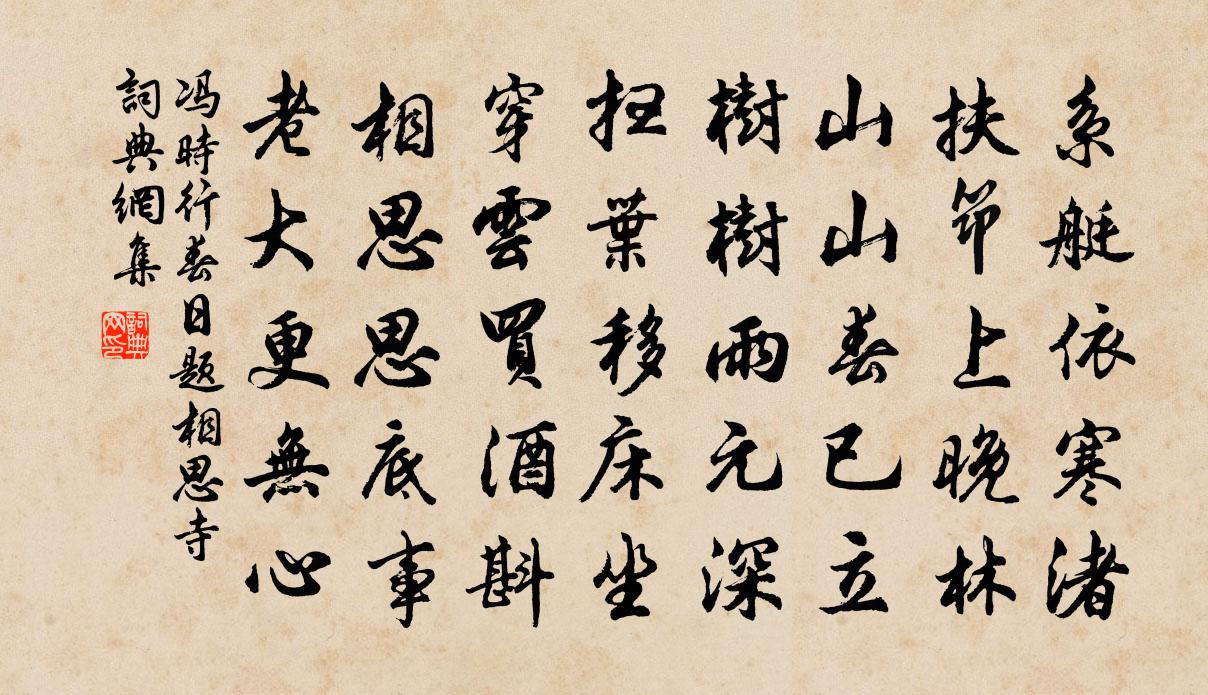 系艇依寒渚
扶筇上晚林
山山春已立
樹樹雨元深
扫葉移床坐
穿雲買酒斟
相思思底事
老大更無心
冯時行春日题相思寺
詞典網集
詞典网印